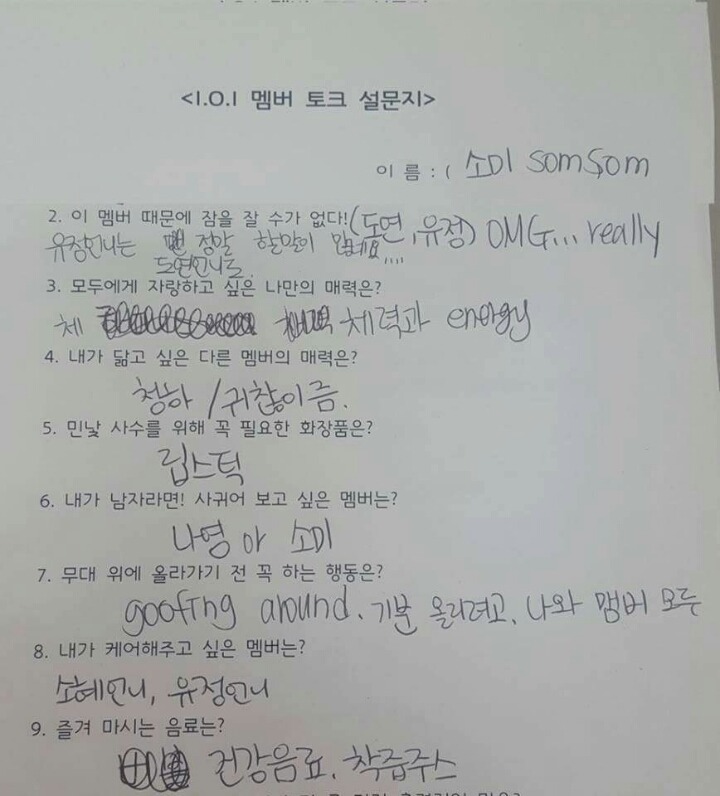 <I.O.I 멤버 토크 설문지>
이 름 : ( 소미 somsom
2. 이 멤버 때문에 잠을 잘 수가 없다! (도연, 유정) OMG... really
유정언니는 정말 할말이
도연언니도.
3. 모두에게 자랑하고 싶은 나만의 매력은?
체 체력과 energy
4. 내가 닮고 싶은 다른 멤버의 매력은?
청하 / 귀찮이즘.
5. 민낯 사수를 위해 꼭 필요한 화장품은?
립스틱
6. 내가 남자라면! 사귀어 보고 싶은 멤버는?
나영 아 소미
7. 무대 위에 올라가기 전 꼭 하는 행동은?
goofing around. 기분 올리려고. 나와 맴버 모두
8. 내가 케어해주고 싶은 멤버는?
소혜언니, 유정언니
9. 즐겨 마시는 음료는?
건강음료. 착즙주스